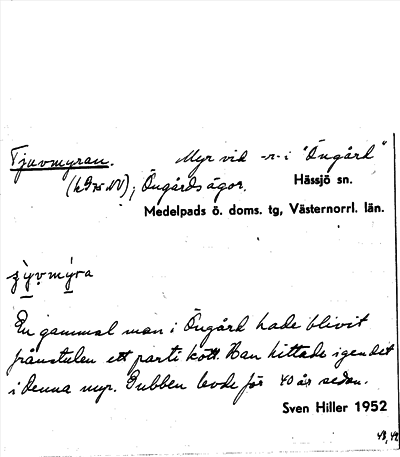 Tjuvmyran. Myr vid -r- i "Öngård"
(h975 NV); Öngårds ägor. Hässjö sn.
Medelpads ö. doms. tg, Västernorrl. län.
En gammal man i Öngård hade blivit
frånstulen ett parti kött. Han hittade igen det
i denna myr. Gubben levde för 40 år sedan.
Sven Hiller 1952